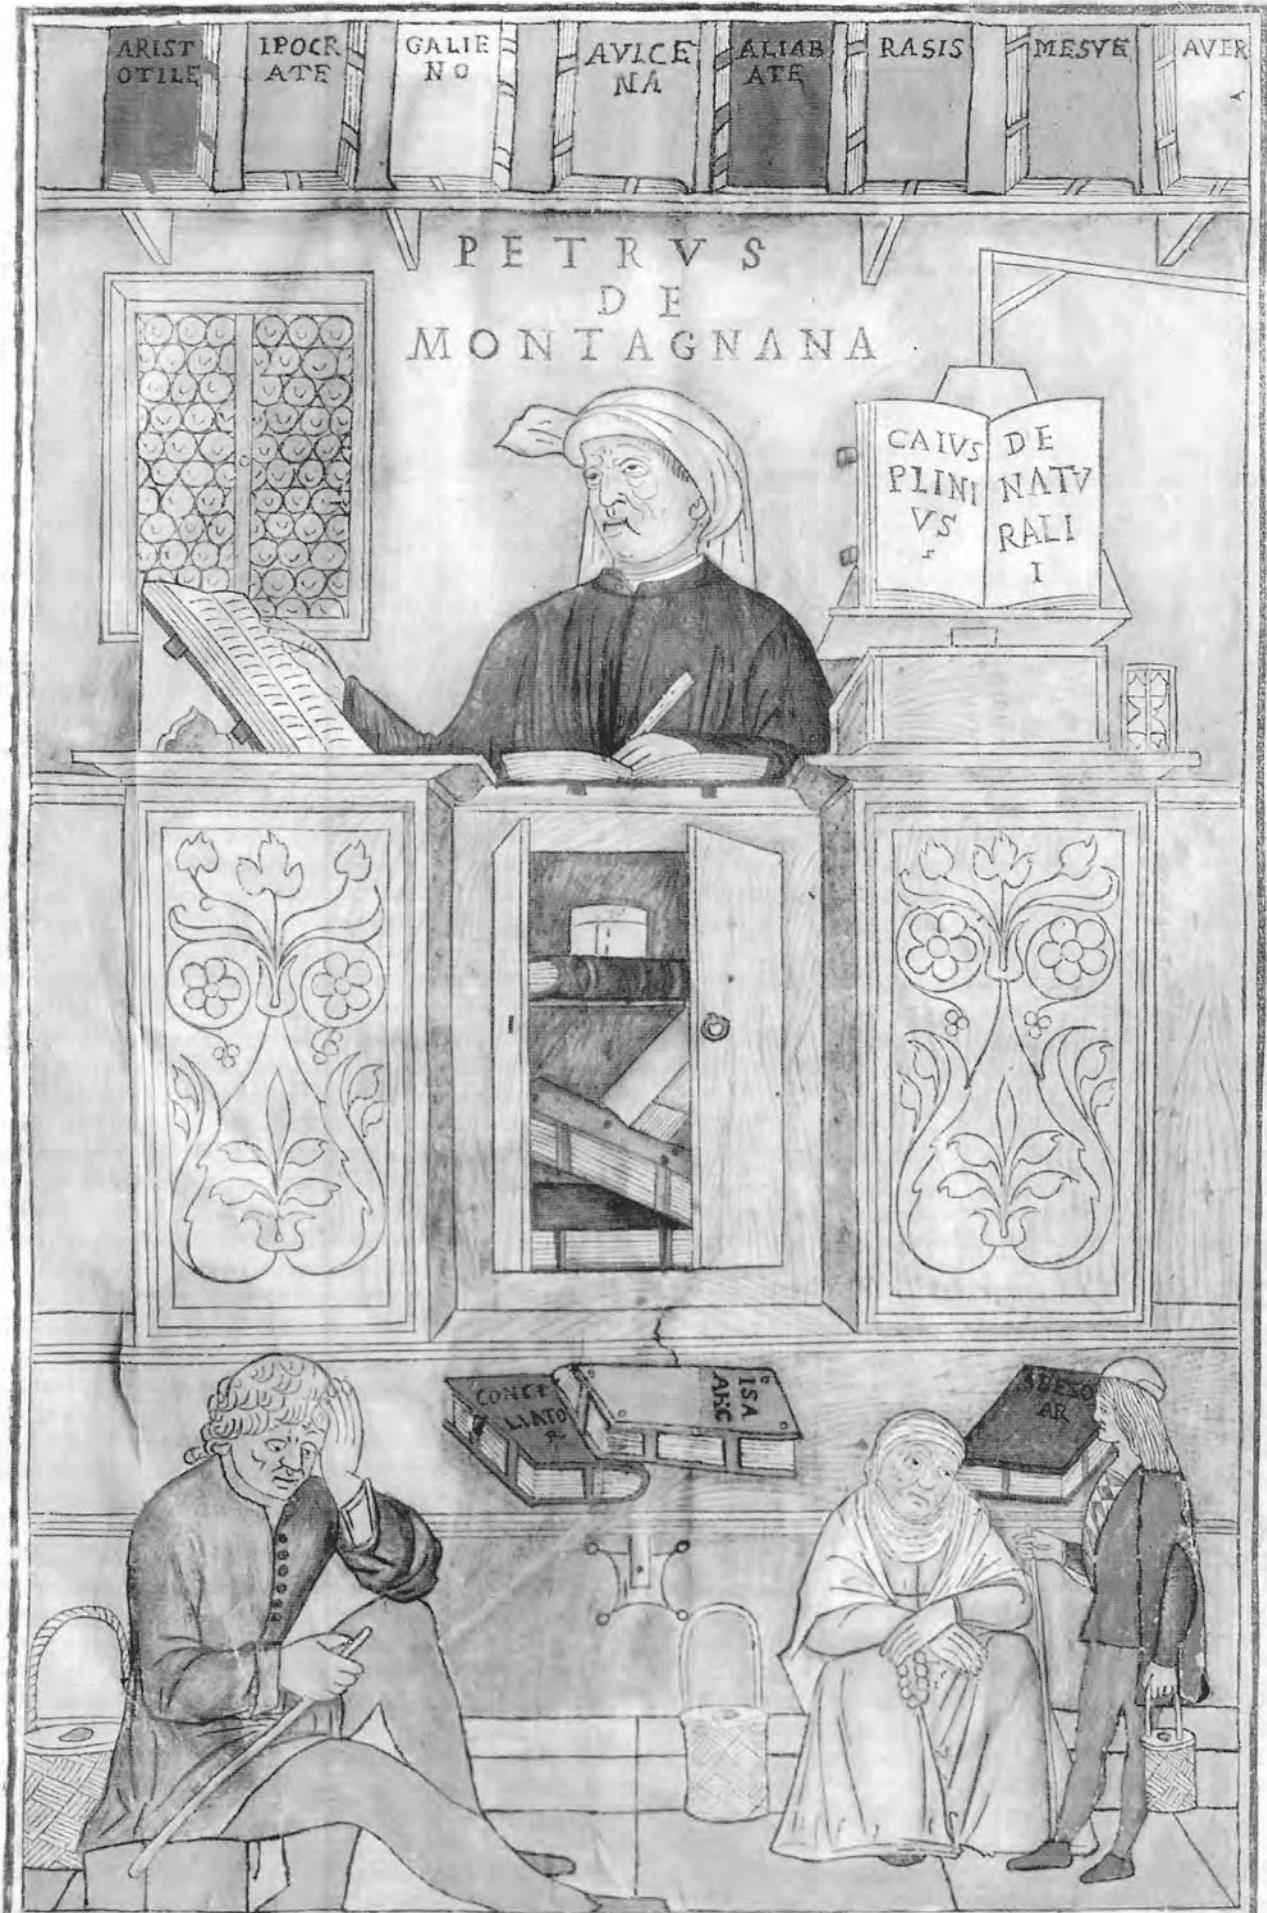 ARIST
OTILE
IPOCR
ATE
GALIE
NO
AVICE
NA
ALIAB
ATE
RASIS
MESVE
AVER
PETRVS
DE
MONTAGNANA
CAIVS
PLINI
VS
S
DE
NATV
RALI
I
CONCI
LIATO
R
ISA
AHC